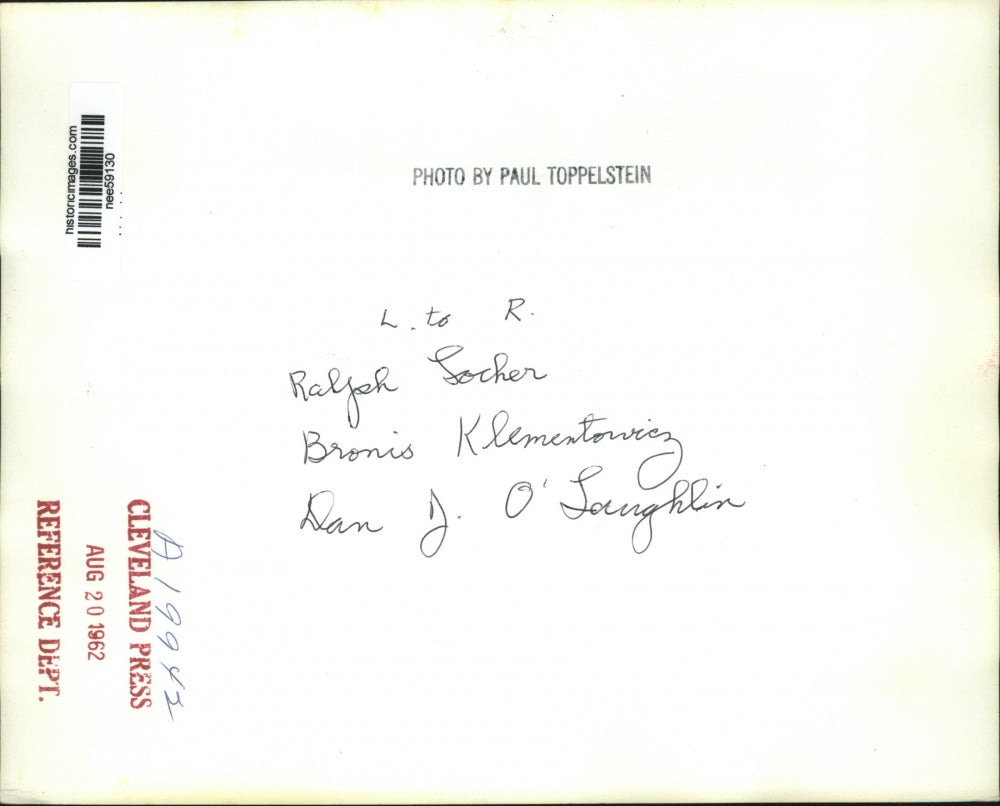 historicimages.com
nee59130
PHOTO BY PAUL TOPPELSTEIN
L. to R.
Ralph Locher
Bronis Klementowicz
Dan J. O'Loughlin
A19942
CLEVELAND PRESS
AUG 20 1962
REFERENCE DEPT.